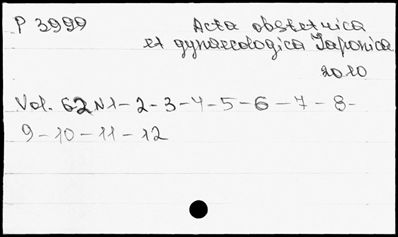 P 3999 Acta obstetrica
et gynaecologica Japonica
2010
Vol. 62 N1-2-3-4-5-6-7-8-
9-10-11-12